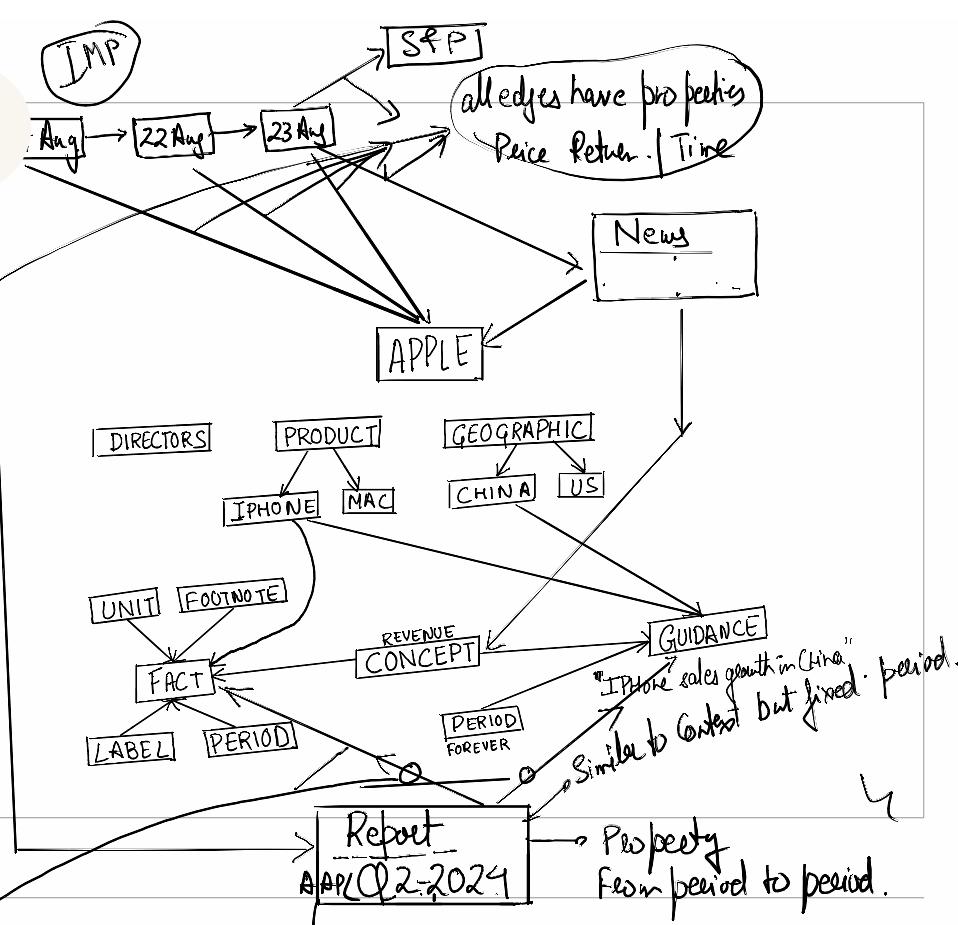 IMP
S&P
all edges have properties
Price Return / Time
Aug
22 Aug
23 Aug
News
APPLE
DIRECTORS
PRODUCT
GEOGRAPHIC
IPHONE
MAC
CHINA
US
UNIT
FOOTNOTE
REVENUE
CONCEPT
GUIDANCE
"IPHone sales growth in China"
FACT
Similar to Context but fixed. period.
LABEL
PERIOD
PERIOD
FOREVER
Report
AAPL Q2-2024
Property
From period to period.